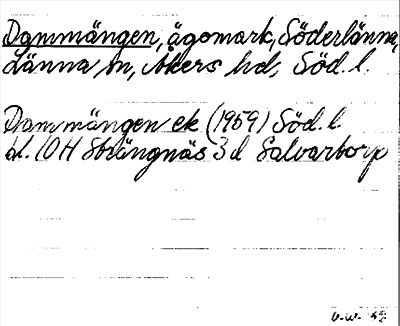 Dammängen, ägomark, Söderlänna,
Länna sn, Åkers hd, Söd. l.
Dammängen ek (1959) Söd. l.
bl. 10H Strängnäs 3d Salvartorp